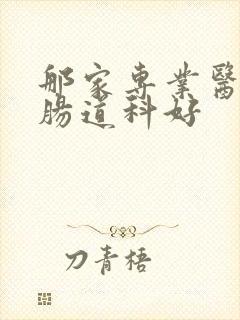 那家專業醫
腸道科好
刀青梧